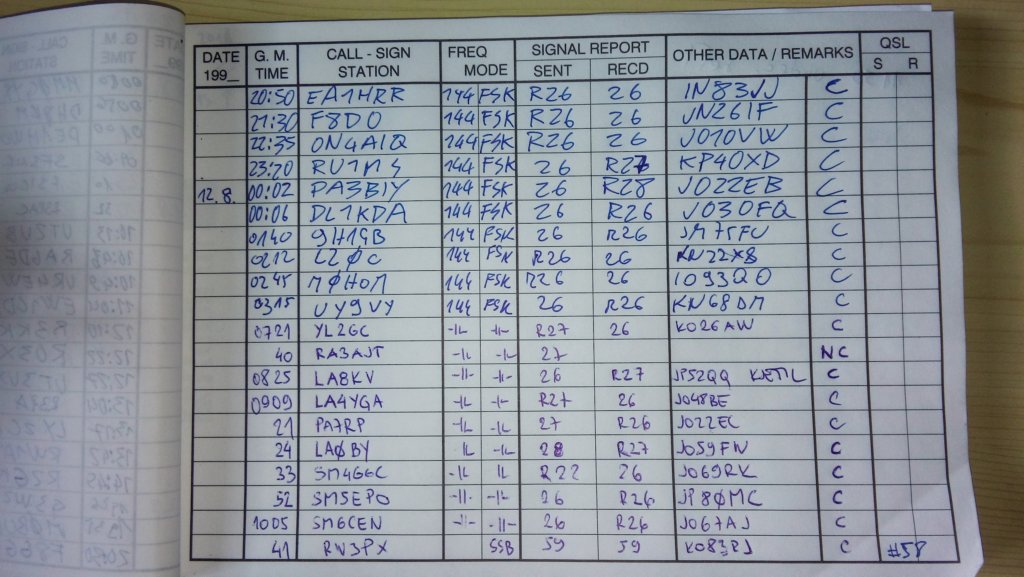 DATE 199_ G. M. TIME CALL - SIGN STATION FREQ MODE SIGNAL REPORT SENT RECD OTHER DATA / REMARKS QSL S R
20:50 EA1HRR 144 FSK R26 26 IN83VJ C
21:30 F8DO 144 FSK R26 26 JN26IF C
22:35 ON4AIQ 144 FSK R26 26 JO10VW C
23:20 RU1MS 144 FSK 26 R27 KP40XD C
12.8. 00:02 PA3BIY 144 FSK 26 R28 JO22EB C
00:06 DL1KDA 144 FSK 26 R26 JO30FQ C
0140 9H1GB 144 FSK 26 R26 JM75FU C
0212 LZ0C 144 FSK R26 26 KN22XS C
0245 M0HOM 144 FSK R26 26 IO93QO C
0315 UY9VY 144 FSK 26 R26 KN68DM C
0721 YL2GC -||- -||- R27 26 KO26AW C
40 RA3AJT -||- -||- 27 NC
0825 LA8KV -||- -||- 26 R27 JP52QQ KJETIL C
0909 LA4YGA -||- -||- R27 26 JO48BE C
21 PA7RP -||- -||- 27 R26 JO22EC C
24 LA0BY -||- -||- 28 R27 JO59FW C
33 SM4GGC -||- -||- R22 26 JO69RK C
52 SM5EPO -||- -||- 26 R26 JP80MC C
1005 SM6CEN -||- -||- 26 R26 JO67AJ C
41 RW3PX SSB 59 59 KO83RJ C #58